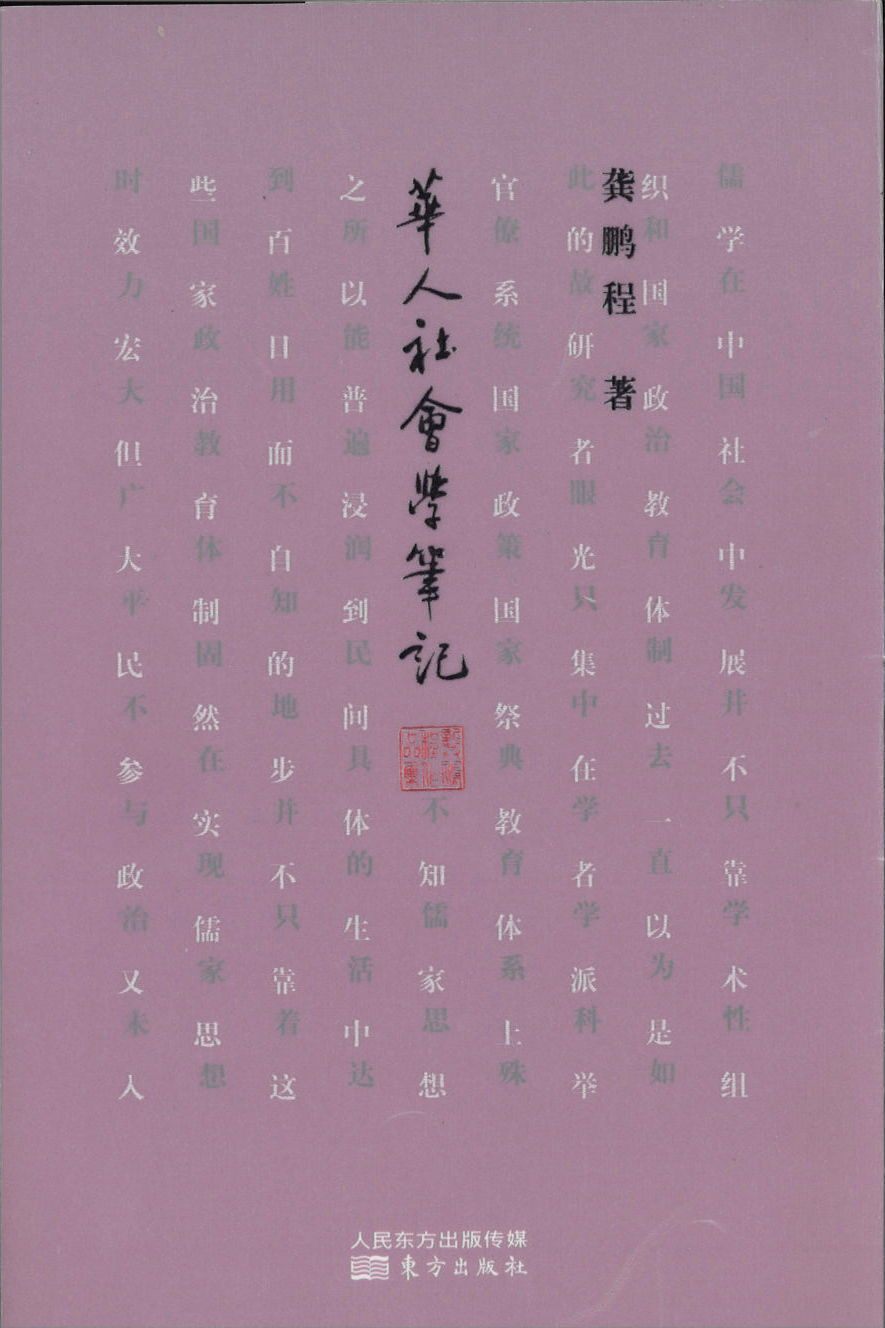 儒学在中国社会中发展并不只靠学术性组
织和国家政治教育体制过去一直以为是如
龚鹏程 著
此的故研究者眼光只集中在学者学派科举
官僚系统国家政策国家祭典教育体系上殊
華人社會學筆記
不知儒家思想
之所以能普遍浸润到民间具体的生活中达
到百姓日用而不自知的地步并不只靠着这
些国家政治教育体制固然在实现儒家思想
时效力宏大但广大平民不参与政治又未入
人民东方出版传媒
東方出版社